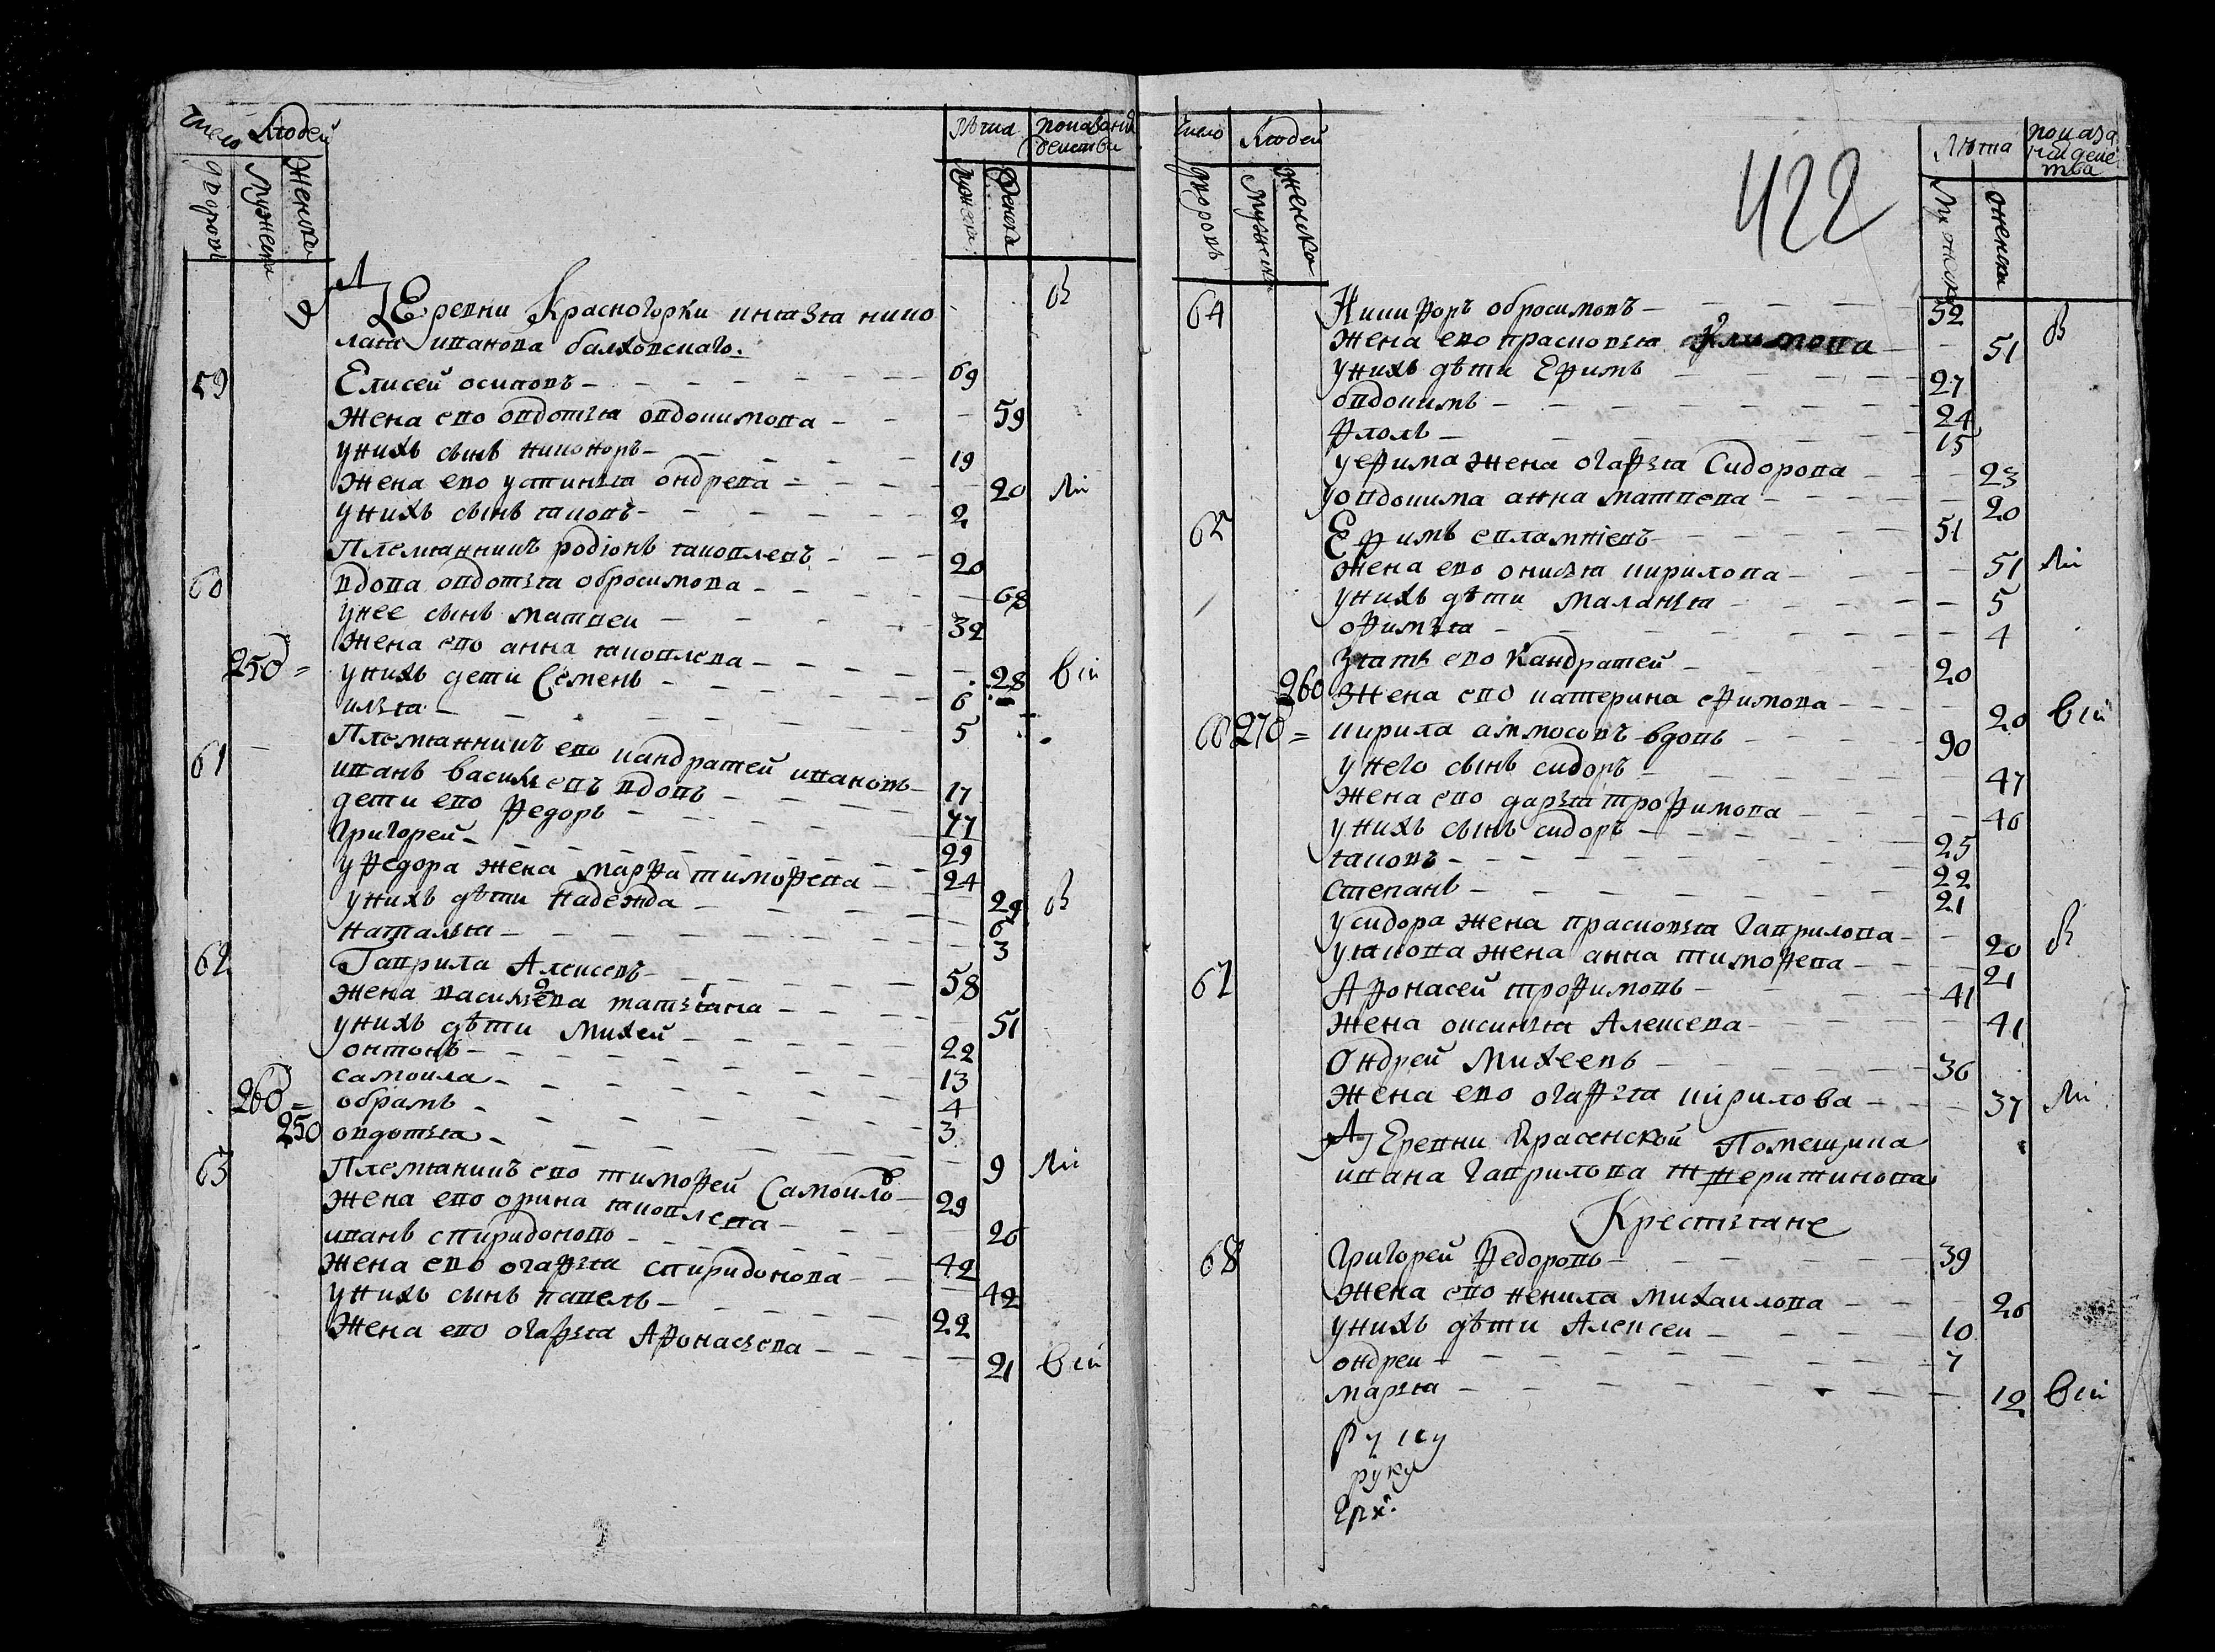 Число Людей Лѣта показанiи
дворовъ мужеска женска мужеска женска действа
Деревни Красногорки князя нико
лаꙗ иванова балховскаго. В
59 Елисей осиповъ 69
жена ево овдотья овдокимова 59
у нихъ сынъ никоноръ 19
жена ево устинья ондрева 20
у нихъ сынъ ꙗковъ 2
Племꙗнникъ родiонъ ꙗковлевъ 20
60 вдова овдотья обросимова 68
у нее сынъ матвеи 32
жена ево анна ꙗковлева 28
250 = у нихъ дети Семенъ 6
илья 5
Племꙗнникъ ево кандратей ивановъ 17
61 иванъ васильевъ вдовъ 77
дети ево Ѳедоръ 29
Григорей 24
у Ѳедора жена марѳа тимоѳева 29 В
у нихъ дѣти надежда 6
наталья 3
62 Гаврила Алексевъ 58
жена васильева татьꙗна 51
у нихъ дѣти Михей 22
онтонъ 13
самоила 4
260 = обрамъ 3
250 овдотья 9
63 Племꙗникъ ево тимоѳей Самоило 29
жена ево орина ꙗковлева 26
иванъ спиридоновъ 42
жена ево огаѳья спиридонова 42
у нихъ сынъ павелъ 22
жена ево огаѳья Аѳонасьева 21
Число Людей 422 Лѣта показа
нiи дейс
тва
дворовъ мужеск женска мужеск женска
64 Никиѳоръ обросимовъ 52 В
жена ево прасковья Климова 51
у нихъ дѣти Еѳимъ 27
овдокимъ 24
Ѳлолъ 15
у еѳима жена огаѳья Сидорова 23
у овдокима анна матвева 20
65 Еѳимъ евлампiевъ 51
жена ево онисья кирилова 51
у нихъ дѣти маланья 5
оѳимья 4
зꙗть ево Кандратей 20
260 жена ево катерина еѳимова 20
66 270 = кирила аммосовъ вдовъ 90
у него сынъ сидоръ 47
жена ево дарья троѳимова 46
у нихъ сынъ сидоръ 25
ꙗковъ 22
степанъ 21
у сидора жена прасковья гаврилова 20 В
у ꙗкова жена анна тимоѳева 21
67 Аѳонасей троѳимовъ 41
жена оксинья Алексева 41
Ондрей Михеевъ 36
жена ево огаѳья кирилова 37
Деревни Красенской Помещика
ивана гаврилова
Крестьꙗне
68 Григорей Ѳедоровъ 39
жена ево ненила михаилова 26
у нихъ дѣти Алексеи 10
ондреи 7
марья 12
руку